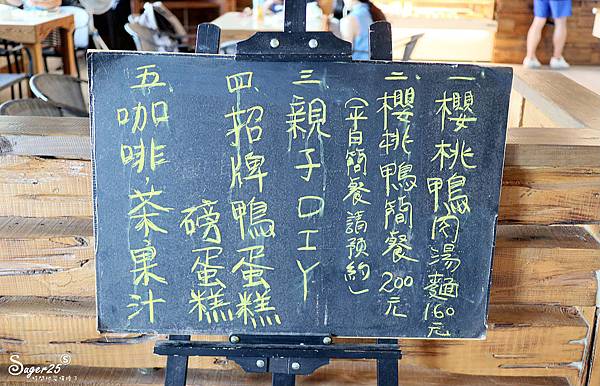 一、櫻桃鴨肉湯麵160元
二、櫻桃鴨簡餐200元
(平日簡餐請預約)
三、親子DIY
四、招牌鴨蛋糕
磅蛋糕
五、咖啡,茶,果汁
Suger25